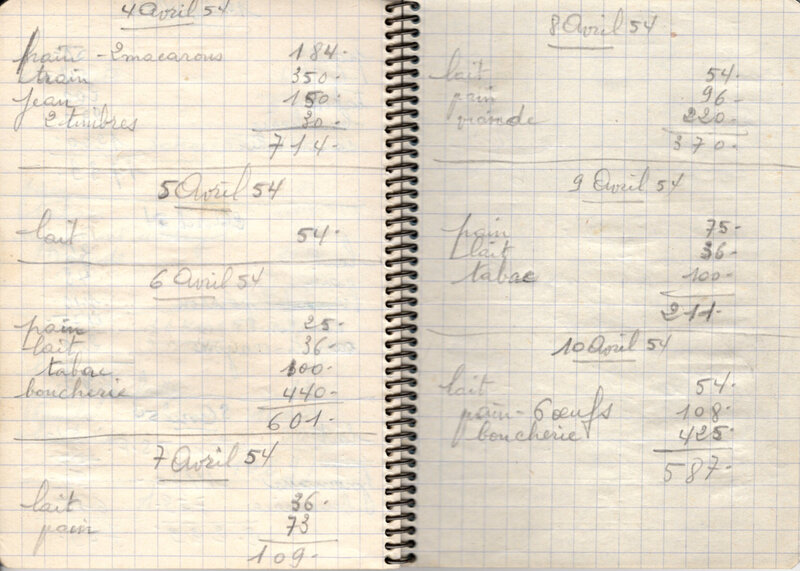 4 Avril 54
pain - 2 macarons 184.
train 350.
Jean 150.
2 timbres 30.
714.
5 Avril 54
lait 54.
6 Avril 54
pain 25.
lait 36.
tabac 100.
boucherie 440.
601.
7 Avril 54
lait 36.
pain 73
109.
8 Avril 54
lait 54.
pain 96.
viande 220.
370.
9 Avril 54
pain 75.
lait 36.
tabac 100.
211.
10 Avril 54
lait 54.
pain - 6 œufs 108.
boucherie 425.
587.